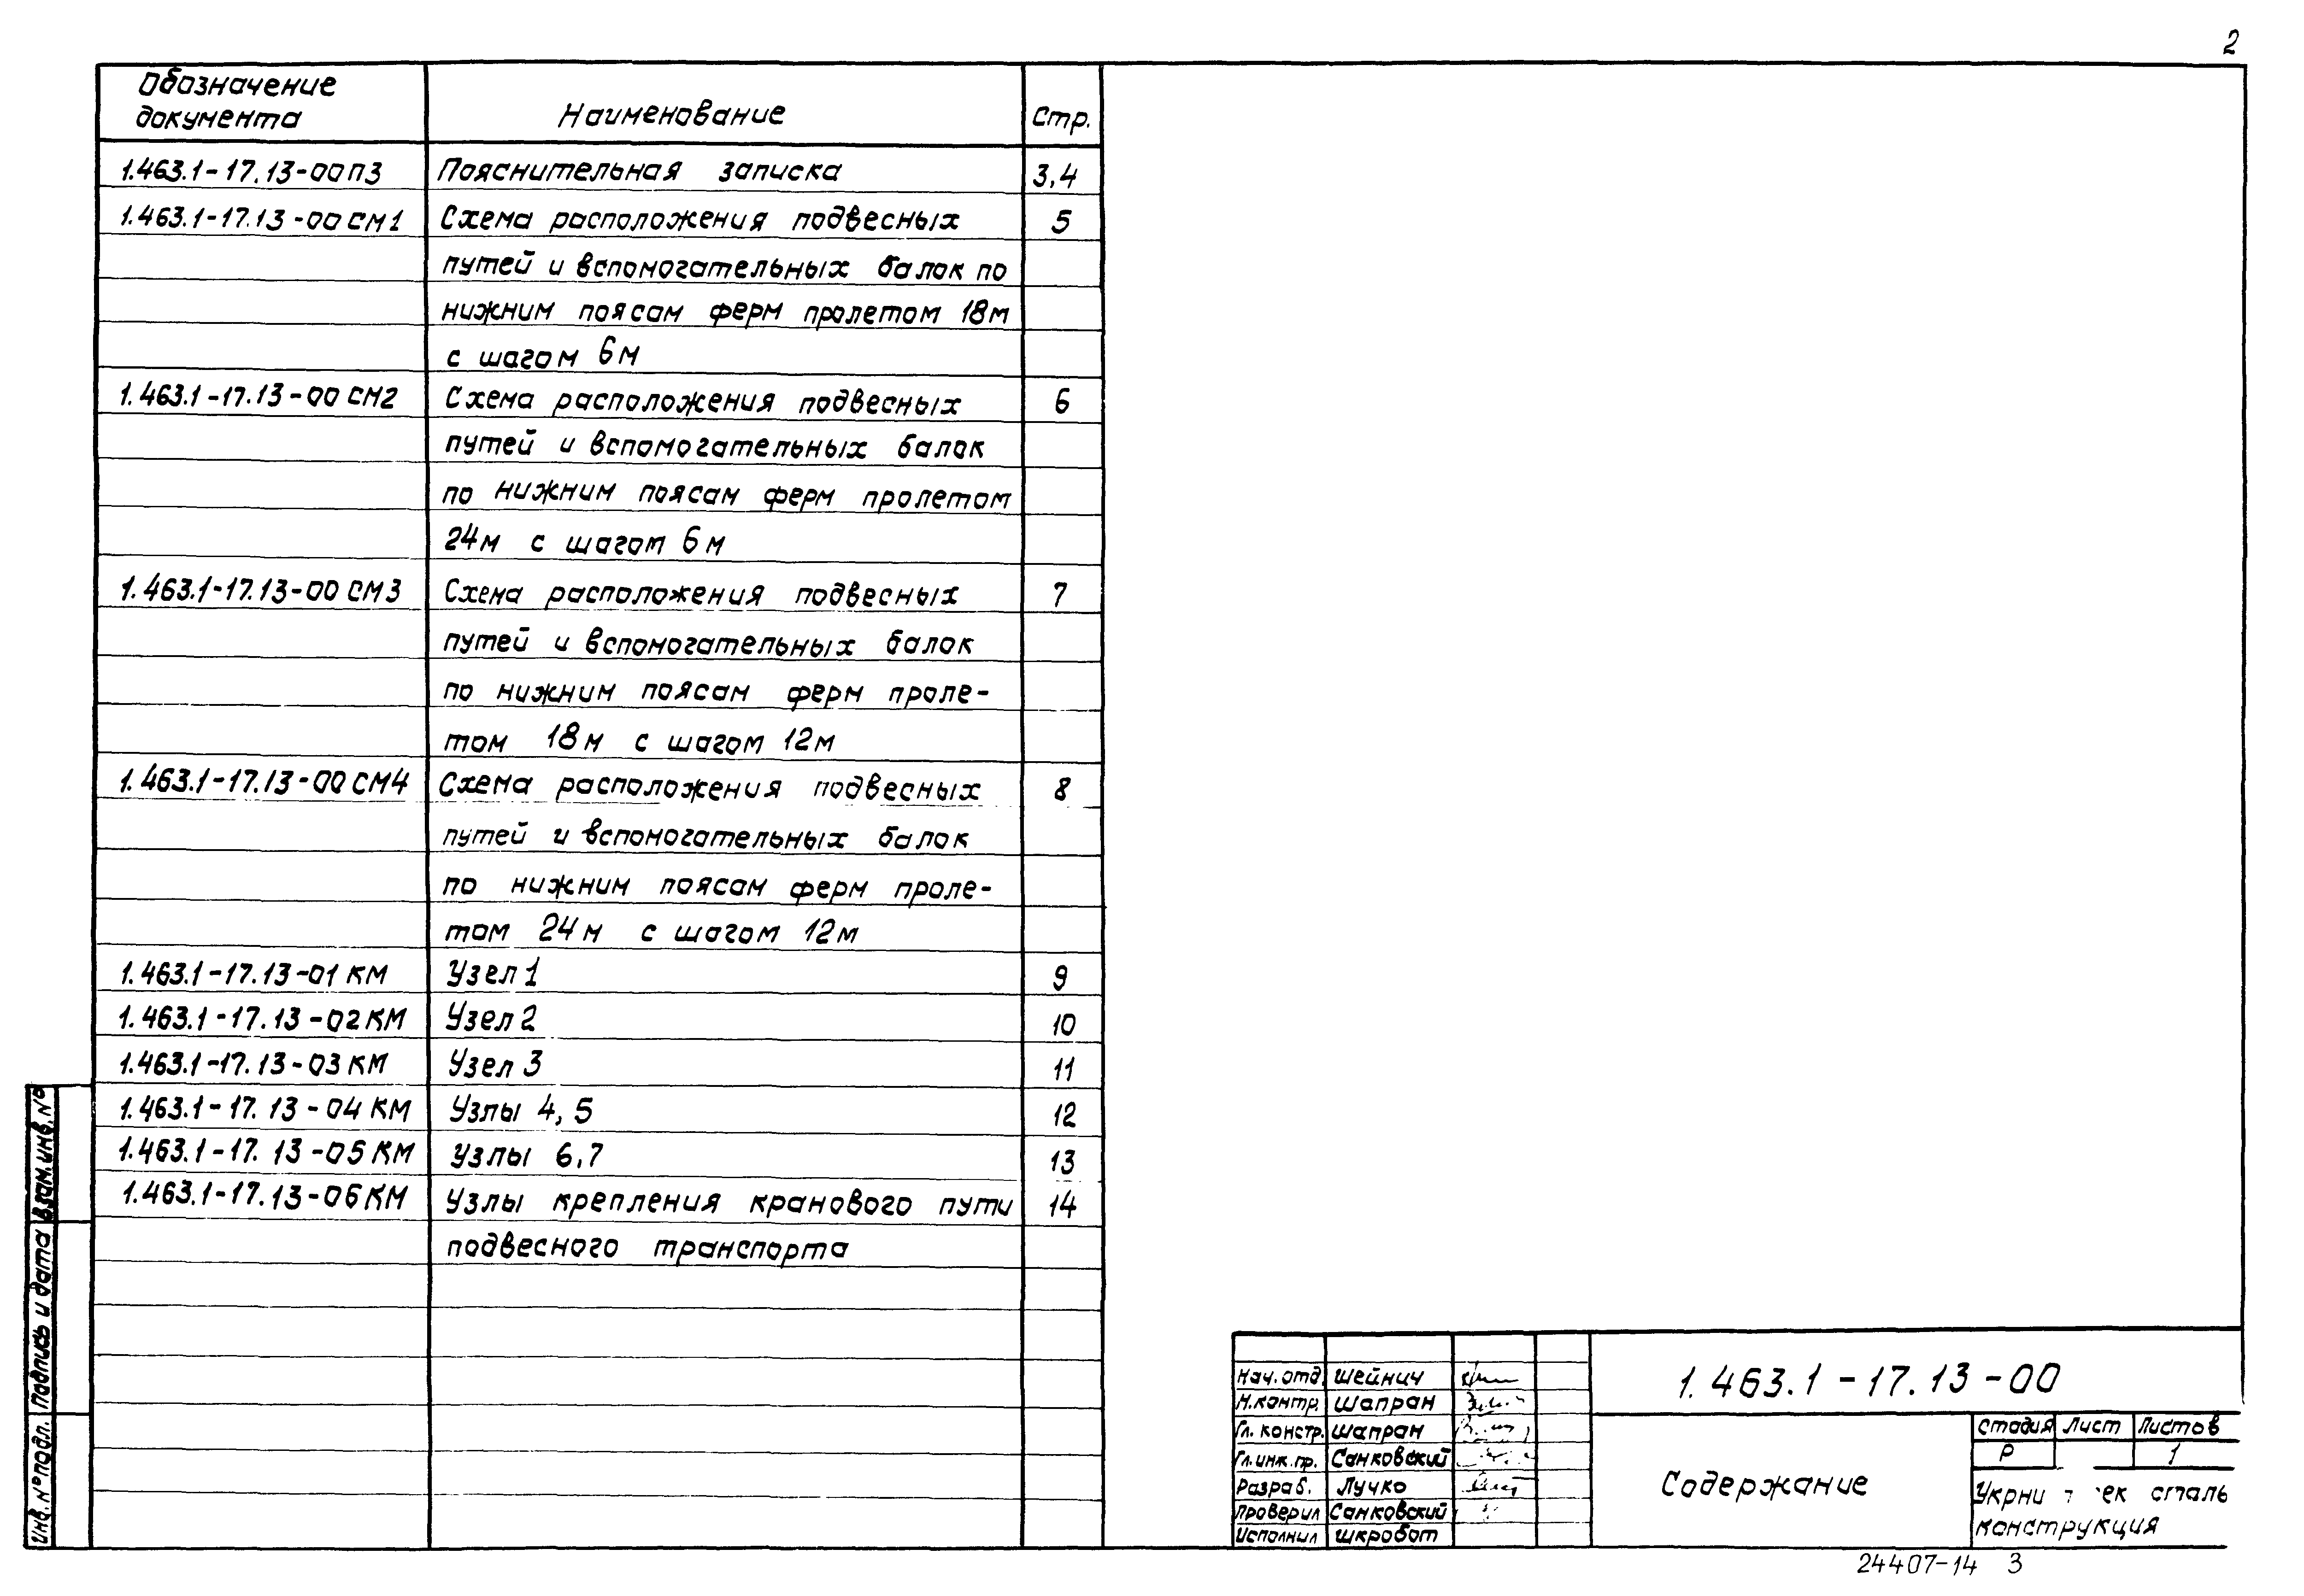 2
Обозначение
документа
Наименование
Стр.
1.463.1-17.13-00ПЗ Пояснительная записка 3,4
1.463.1-17.13-00СМ1 Схема расположения подвесных 5
путей и вспомогательных балок по
нижним поясам ферм пролетом 18м
с шагом 6м
1.463.1-17.13-00СМ2 Схема расположения подвесных 6
путей и вспомогательных балок
по нижним поясам ферм пролетом
24м с шагом 6м
1.463.1-17.13-00СМ3 Схема расположения подвесных 7
путей и вспомогательных балок
по нижним поясам ферм проле-
том 18м с шагом 12м
1.463.1-17.13-00СМ4 Схема расположения подвесных 8
путей и вспомогательных балок
по нижним поясам ферм проле-
том 24м с шагом 12м
1.463.1-17.13-01КМ Узел 1 9
1.463.1-17.13-02КМ Узел 2 10
1.463.1-17.13-03КМ Узел 3 11
1.463.1-17.13-04КМ Узлы 4, 5 12
1.463.1-17.13-05КМ Узлы 6,7 13
1.463.1-17.13-06КМ Узлы крепления кранового пути 14
подвесного транспорта
Инв. № подл. Подпись и дата Взам. инв. №
Нач. отд. Шейнич
Н.контр. Шапран
Гл. констр. Шапран
Гл. инж. пр. Санковский
Разраб. Лучко
Проверил Санковский
Исполнил Шкробот
1.463.1-17.13-00
Содержание
Стадия Лист Листов
Р 1
сталь
конструкция
24407-14 3